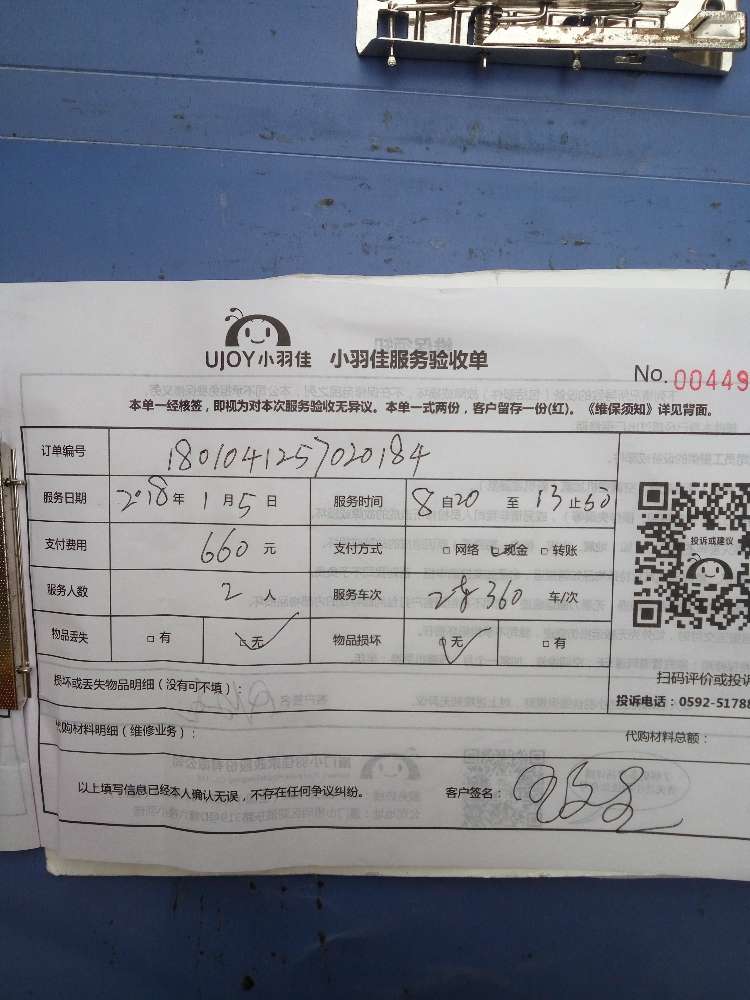 UJOY小羽佳 小羽佳服务验收单
No. 00449
本单一经核签，即视为对本次服务验收无异议。本单一式两份，客户留存一份(红)。《维保须知》详见背面。
订单编号 1801041257020184
服务日期 2018年1月5日 服务时间 8自20至13止50
支付费用 660元 支付方式 □网络 ☑现金 □转账
服务人数 2人 服务车次 360 车/次
物品丢失 □有 ☑无 物品损坏 ☑无 □有
投诉或建议
扫码评价或投诉
损坏或丢失物品明细（没有可不填）：
投诉电话：0592-51788
代购材料明细（维修业务）： 代购材料总额：
以上填写信息已经本人确认无误，不存在任何争议纠纷。 客户签名：